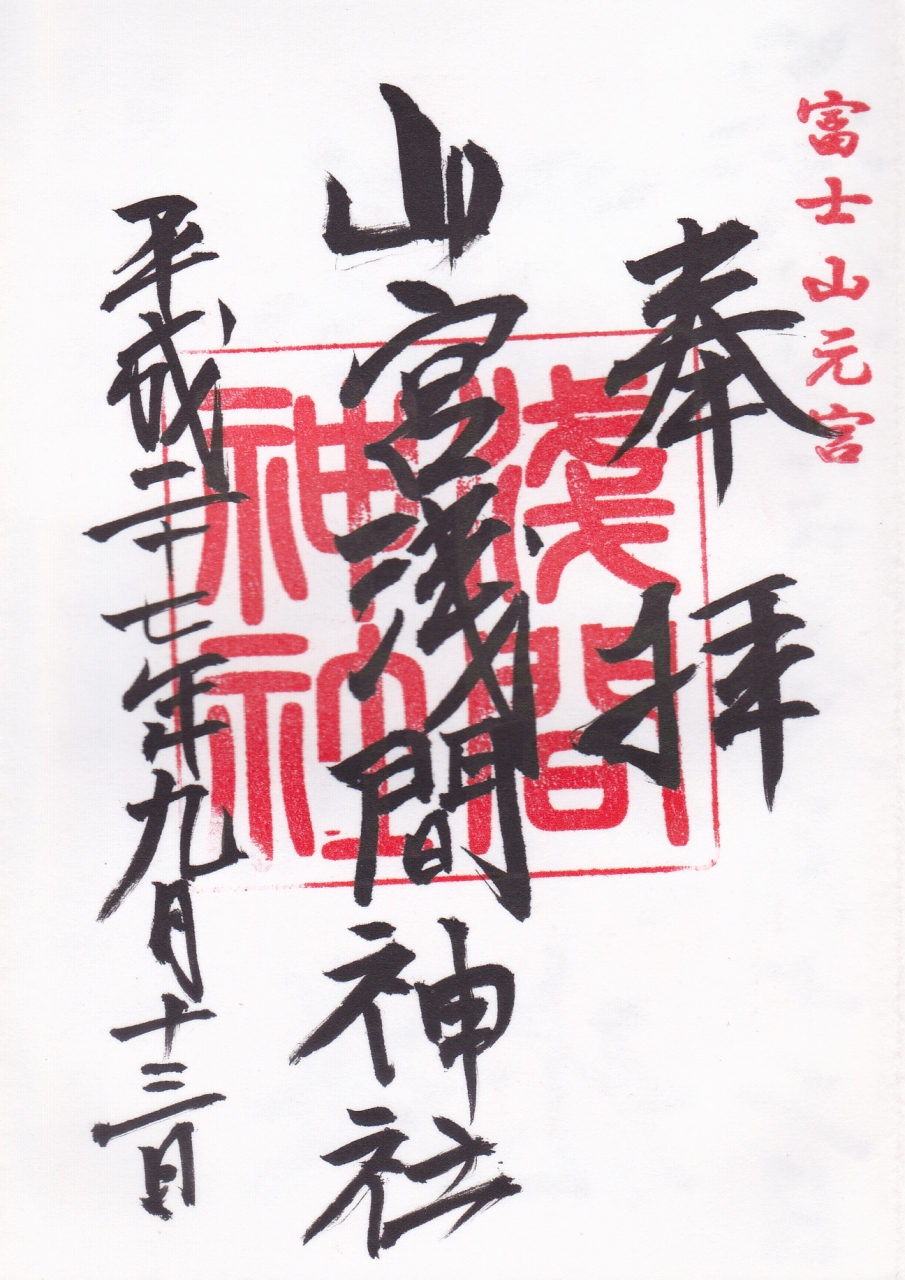 富士山元宮
奉拝
山宮浅間神社
平成二十七年九月十三日
淺間
神社